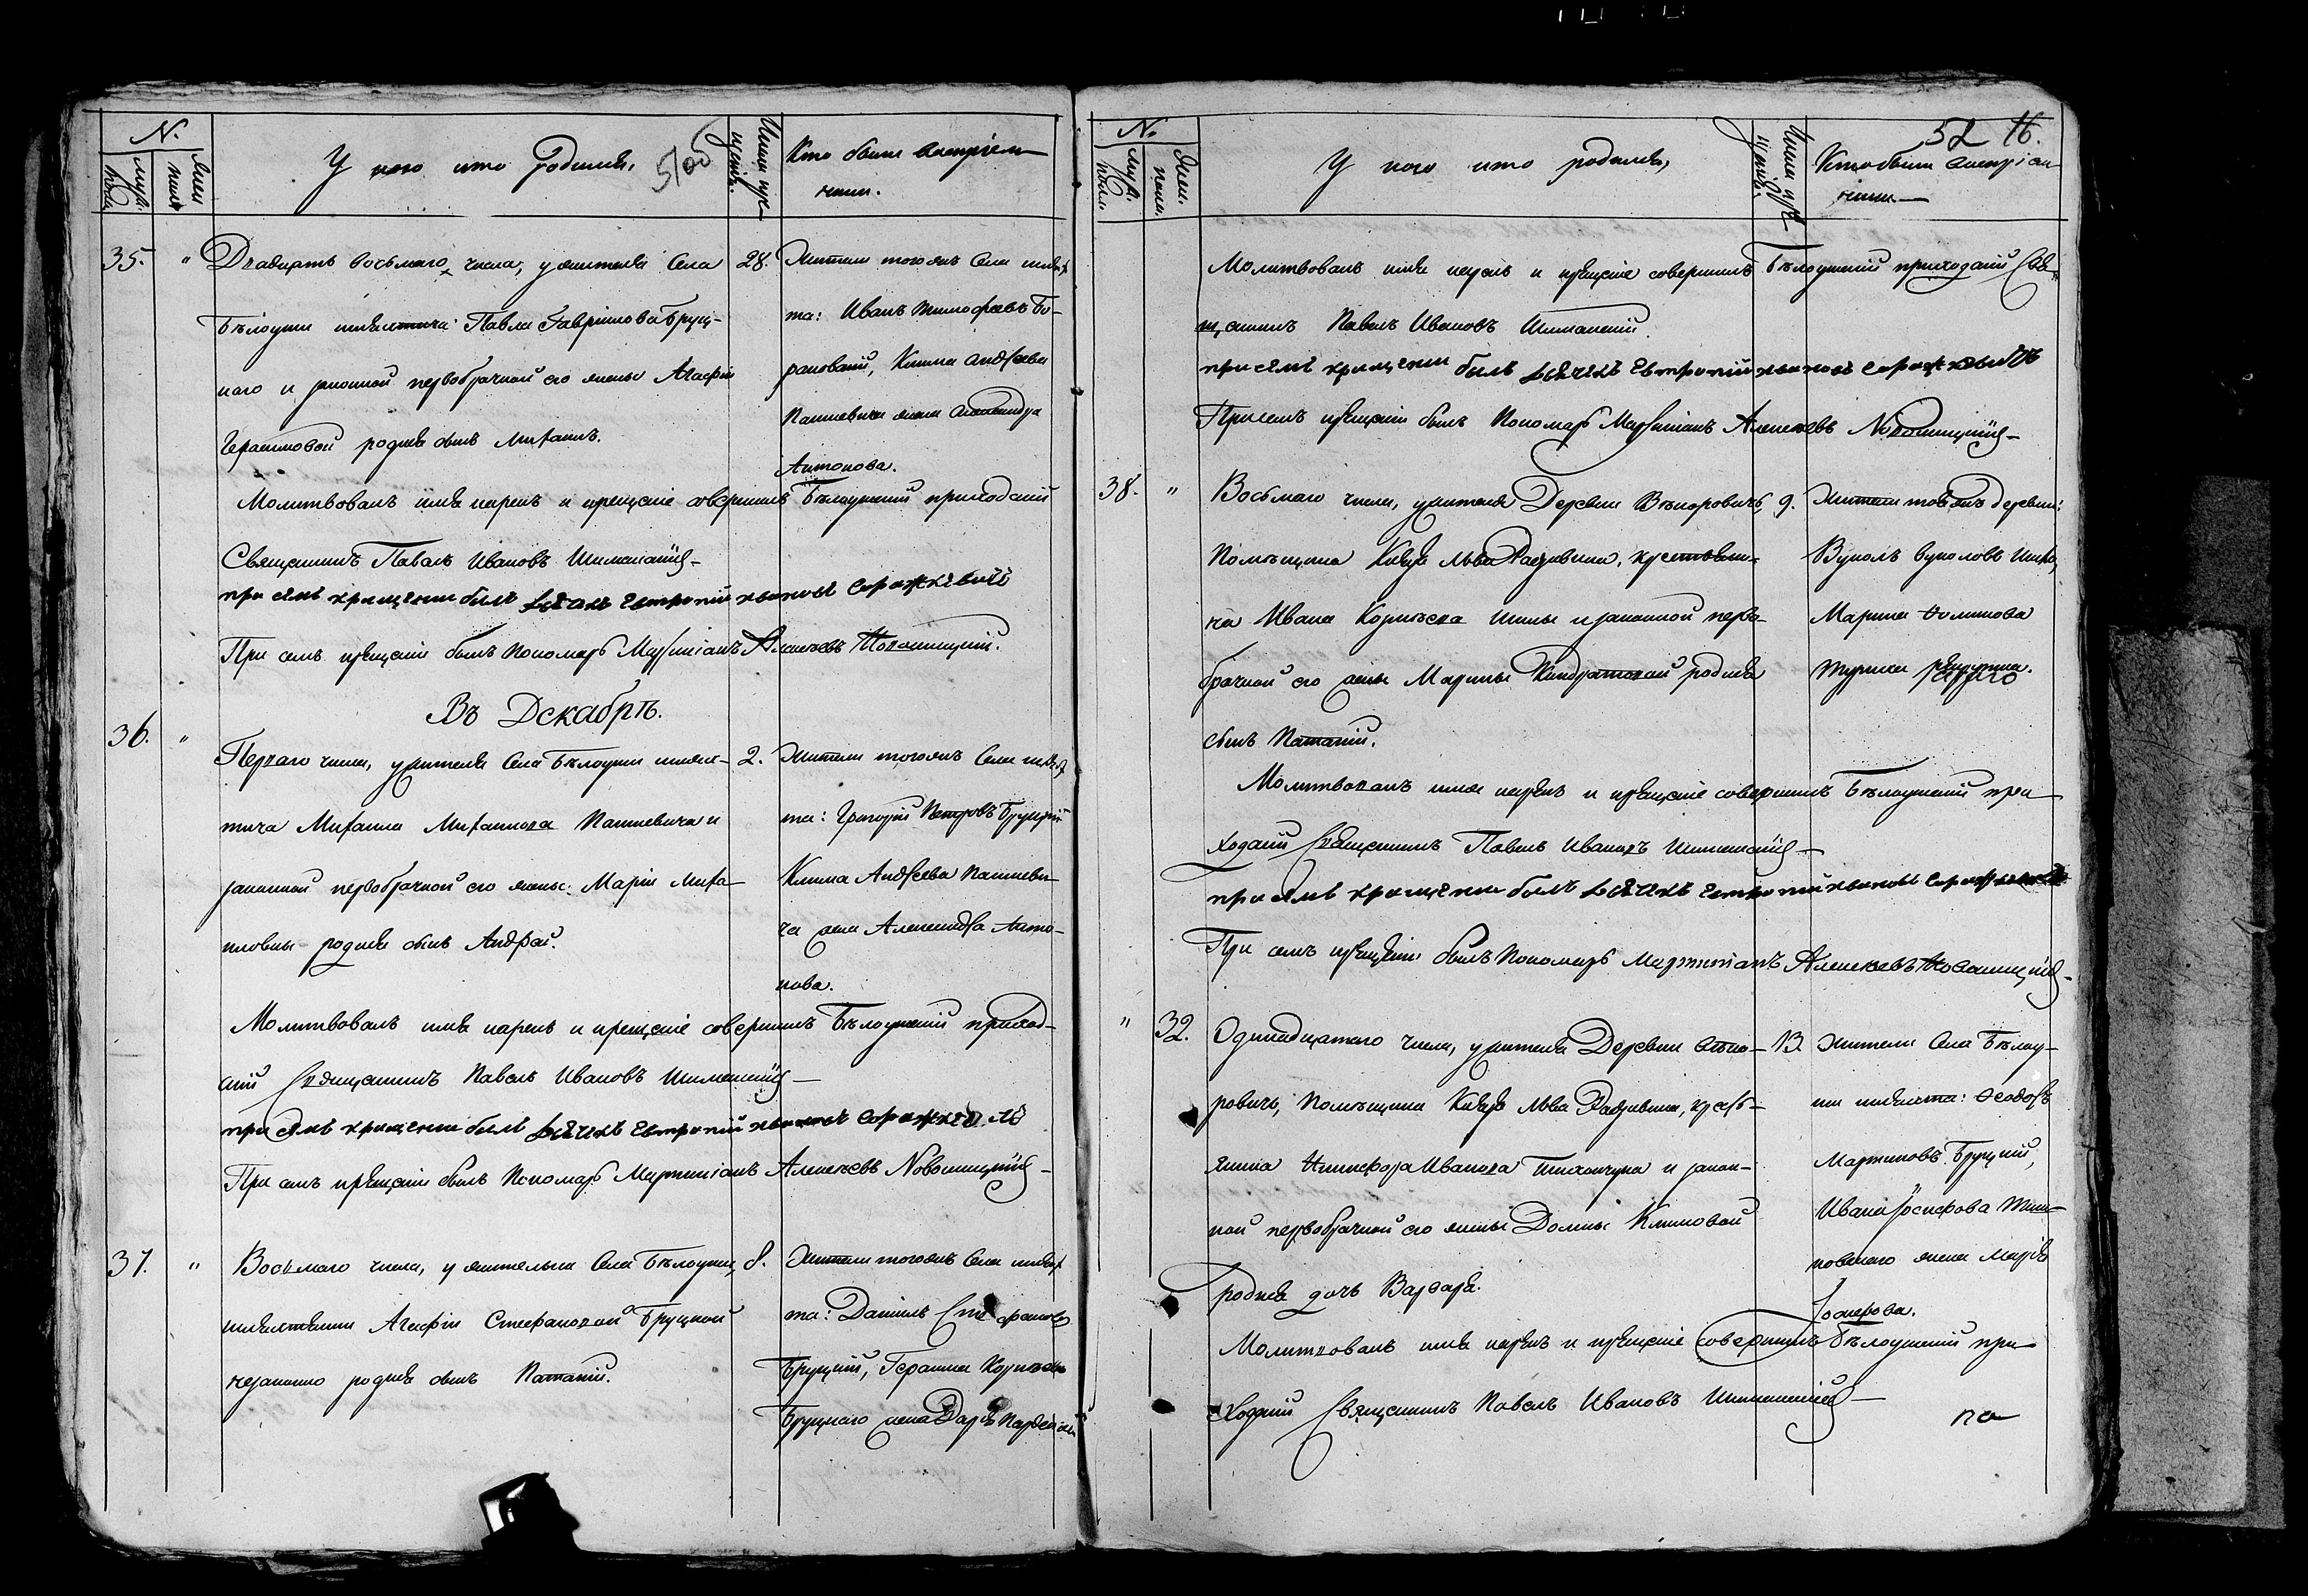 N.
Муж. пола
Жен. пола
У кого кто родился,
51об
Число крещенія.
Кто были воспріемники.
35.
"
Двадцать восьмаго числа, у жителя Села
Бѣлоуши шляхтича Павла Гавріилова Бруц-
каго и законной первобрачной его жены Агафіи
Герасимовой родился сынъ Михаилъ.
28.
Жители тогожъ Села шлях
та: Иванъ Тимофеевъ Бо-
рановскій, Клима Андреева
Пашкевича жена Александра
Антонова.
Молитвовалъ имя нарекъ и крещеніе совершилъ Бѣлоушскій приходскій
Священникъ Павелъ Ивановъ Шиманскій
при семъ крещении былъ Дьячекъ Евтропій Ивановъ
При семъ крещеніи былъ Пономарь Мартиніанъ Алексѣевъ Новомицкій.
Въ Декабрѣ.
36.
"
Перваго числа, у жителя Села Бѣлоуши шлях-
тича Михаила Михаилова Пашкевича и
законной первобрачной его жены: Маріи Миха-
иловны родился сынъ Андрей.
2.
Жители тогожъ Села шлях
та: Григорій Петровъ Бруцкій
Клима Андреева Пашкеви-
ча жена Александра Анто-
нова.
Молитвовалъ имя нарекъ и крещеніе совершилъ Бѣлоушскій приход-
скій Священникъ Павелъ Ивановъ Шиманскій
при семъ крещении былъ Дьячекъ Евтропій Ивановъ
При семъ крещеніи былъ Пономарь Мартиніанъ Алексѣевъ Новомицкій
37.
"
Восьмаго числа, у жительки Села Бѣлоуши,
шляхтянки Агафіи Стефановой Бруцкой
незаконно родился сынъ Потапій.
8.
Жители тогожъ Села шлях
та: Даніилъ Стефановъ
Бруцкій, Герасима Корнѣева
Бруцкаго жена Дарія
N.
Муж. пола
Жен. пола
У кого кто родился,
Число крещенія.
52 16.
Кто были воспріем-
ники
Молитвовалъ имя нарекъ и крещеніе совершилъ Бѣлоушскій приходскій Свя-
щенникъ Павелъ Ивановъ Шиманскій
при семъ крещении былъ Дьячекъ Евтропій Ивановъ
При семъ крещеніи былъ Пономарь Мартиніанъ Алексѣевъ Новомицкій
38.
"
Восьмаго числа, у жителя Деревни
Помѣщика Князя Льва Радзивила, крестьяни-
на Ивана Корнѣева и законной перво-
брачной его жены Марины Кондратовой родился
сынъ Потапій.
9.
Жители тойжъ деревни:
Вуколъ Вуколовъ
Марина
Молитвовалъ имя нарекъ и крещеніе совершилъ Бѣлоушскій при-
ходскій Священникъ Павелъ Ивановъ Шиманскій
при семъ крещении былъ Дьячекъ Евтропій Ивановъ
При семъ крещеніи былъ Пономарь Мартиніанъ Алексѣевъ Новомицкій
"
32.
Одинадцатаго числа, у жителя Деревни
ровичъ, Помѣщика Князя Льва Радзивила, кресть-
янина Никифора Иванова и закон-
ной первобрачной его жены Домны Климовой
родилась дочь Варвара.
13.
Жители Села Бѣлоу-
ши шляхта: Ѳеодоръ
Мартиновъ Бруцкій,
Ивана Іосифова
жена Марія
Молитвовалъ имя нарекъ и крещеніе совершилъ Бѣлоушскій при-
ходскій Священникъ Павелъ Ивановъ Шиманскій